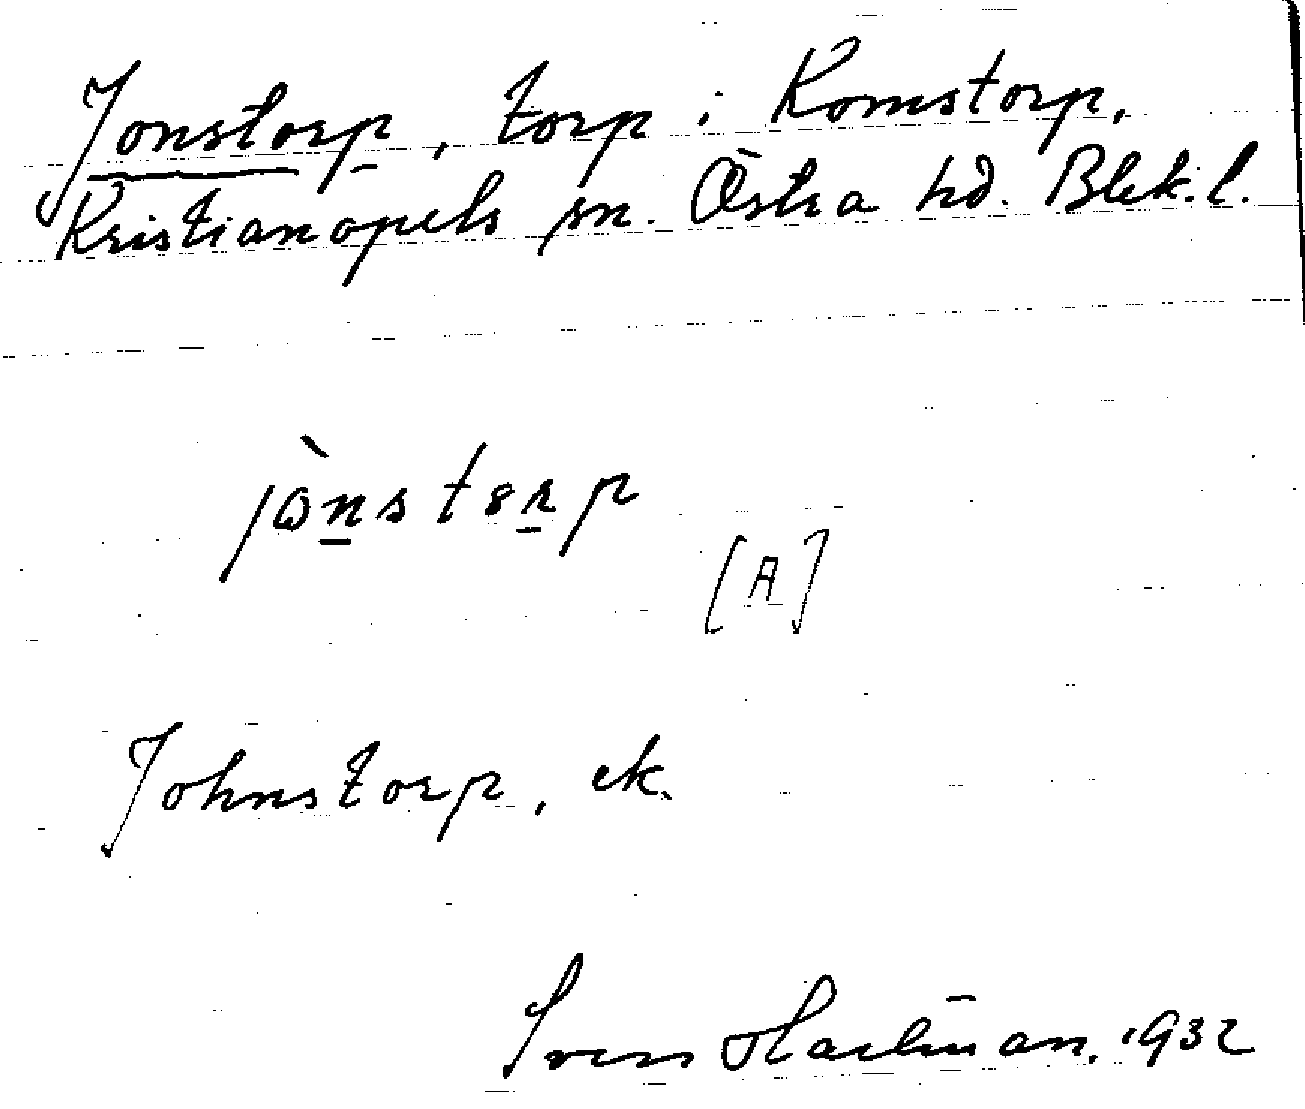 Jonstorp, torp i Komstorp,
Kristianopels sn. Östra hd. Blek. l.
[A]
Johnstorp, ek.
Sven Hartman. 1932